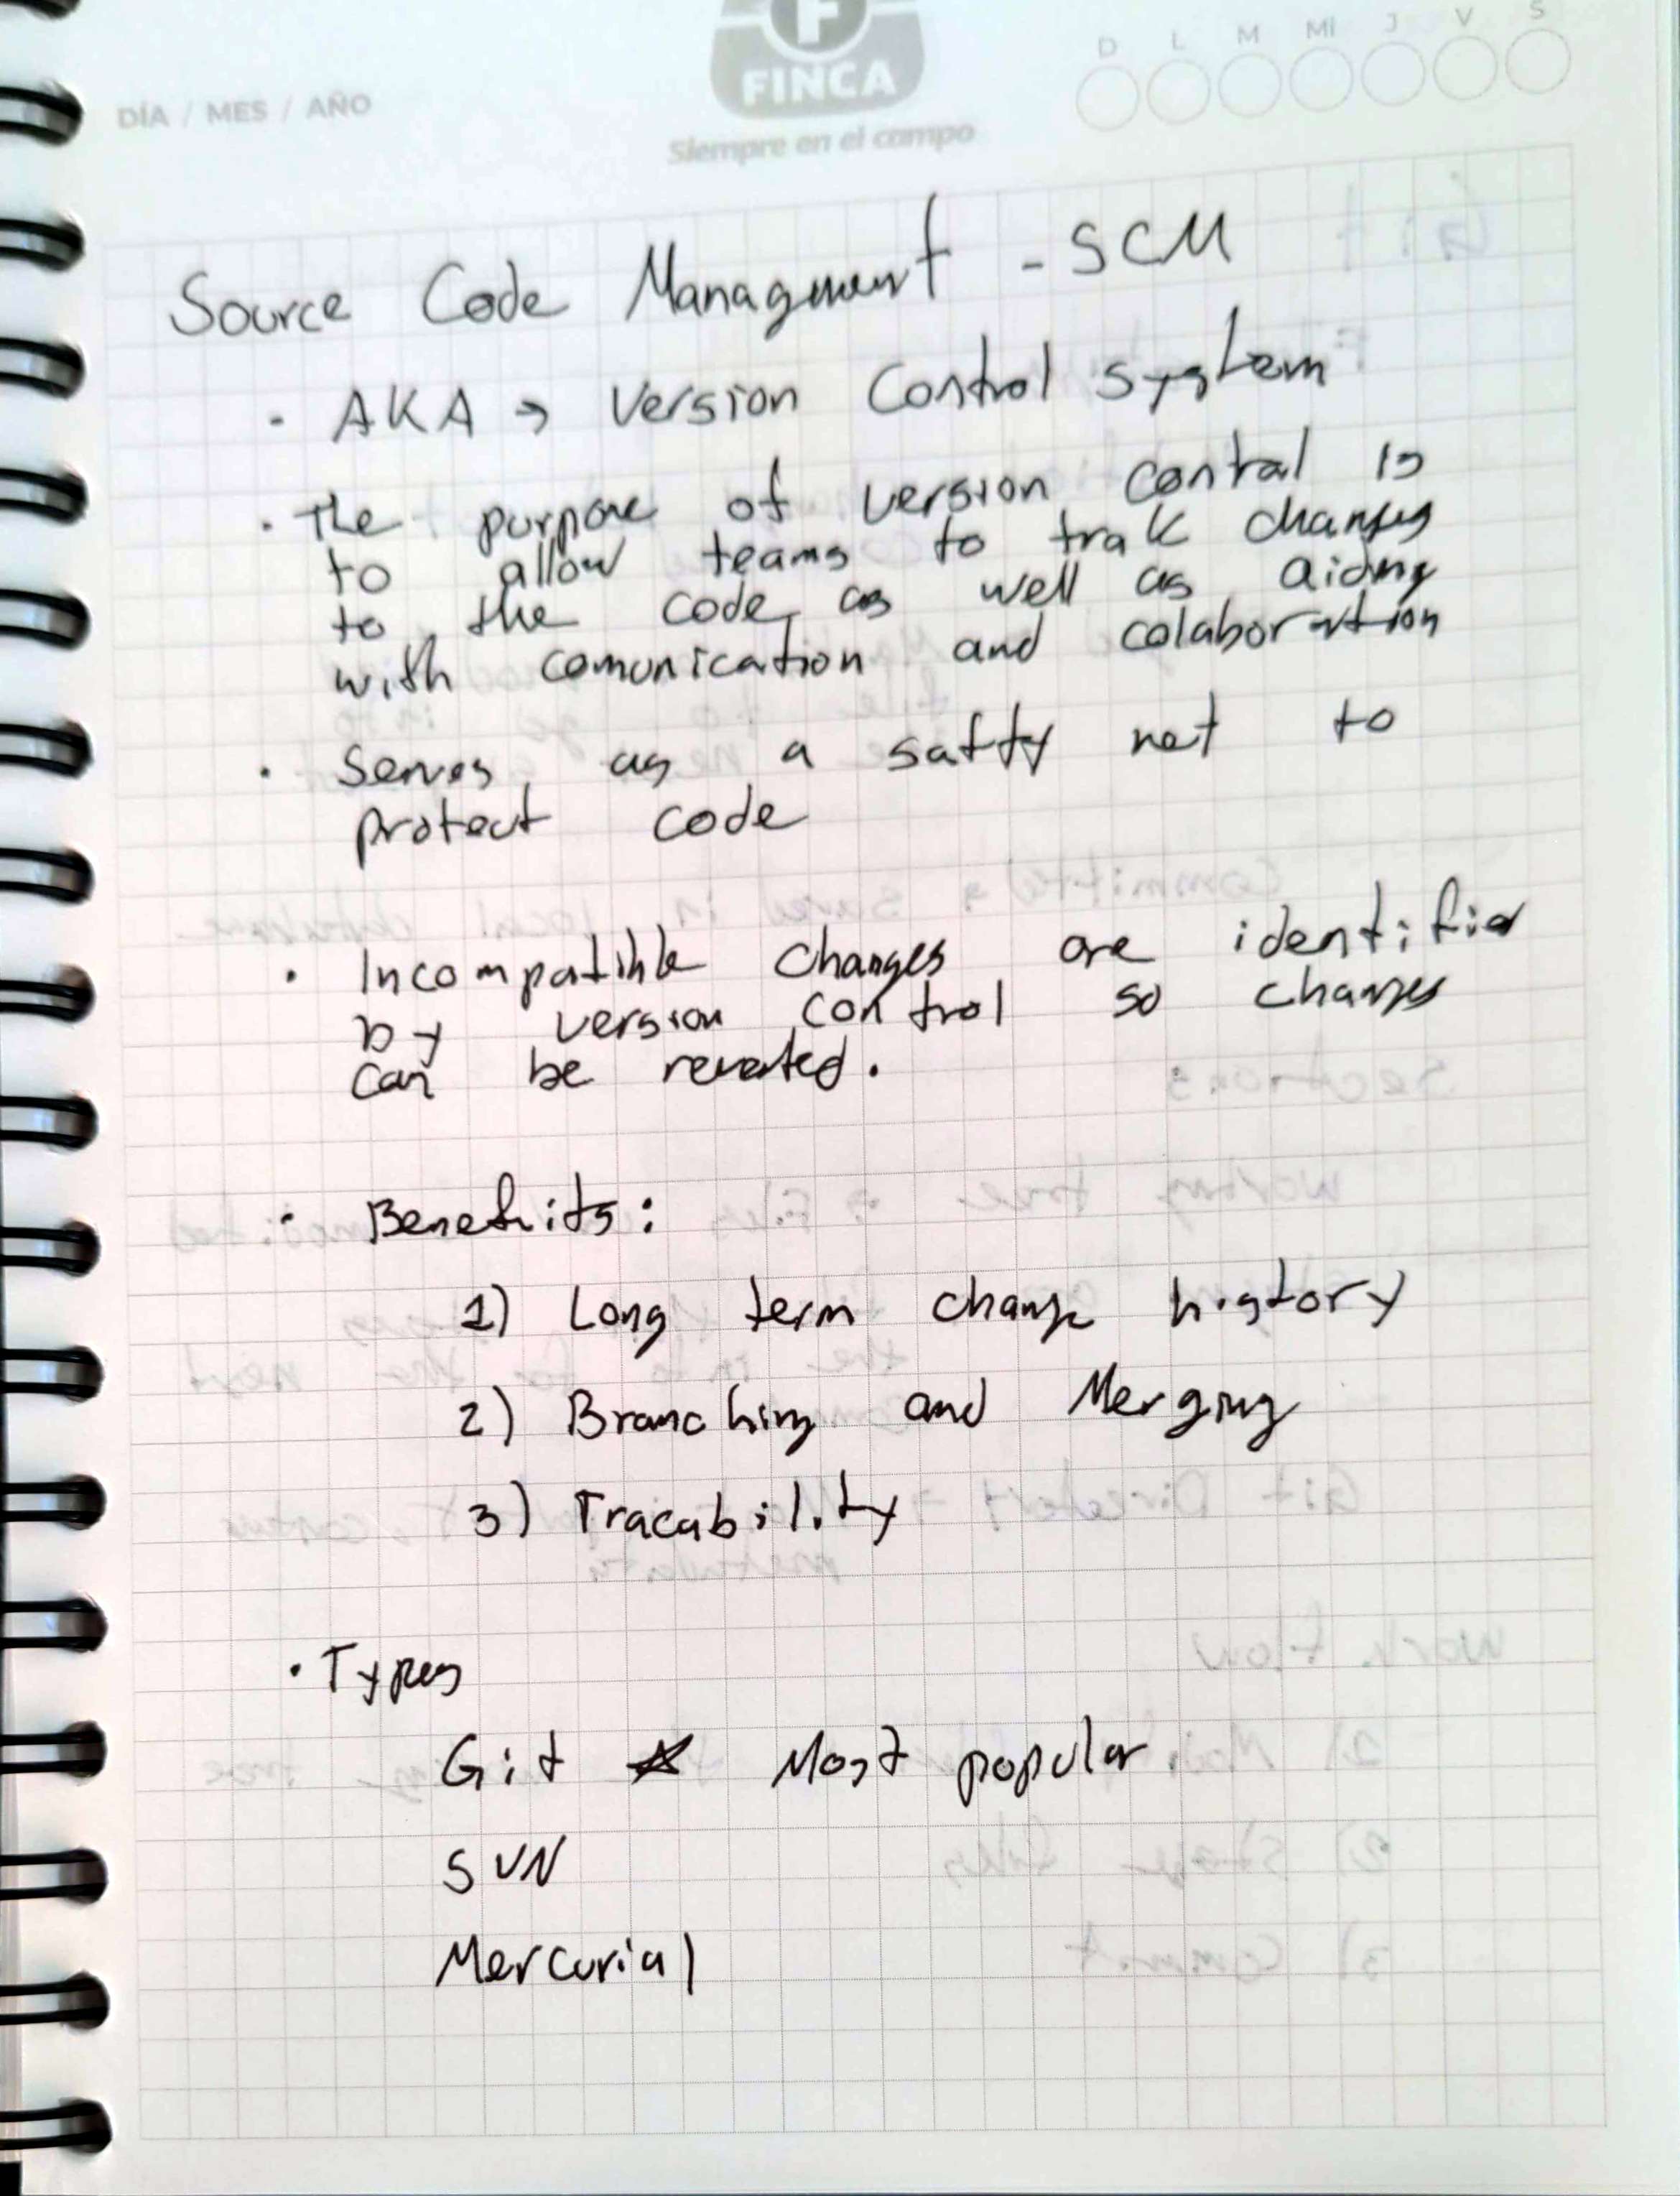 F
FINCA
Siempre en el campo
DÍA / MES / AÑO
D L M MI J V S
Source Code Managment - SCM
- AKA → Version Control System
• The purpose of version control is
to allow teams to trak changes
to the code, as well as aiding
with comunication and colaboration
• Serves as a safty net to
protect code
• Incompatible changes are identified
by version control so changes
can be reverted.
• Benefits:
1) Long term change history
2) Branching and Merging
3) Tracability
• Types
Git ☆ Most popular
SVN
Mercurial